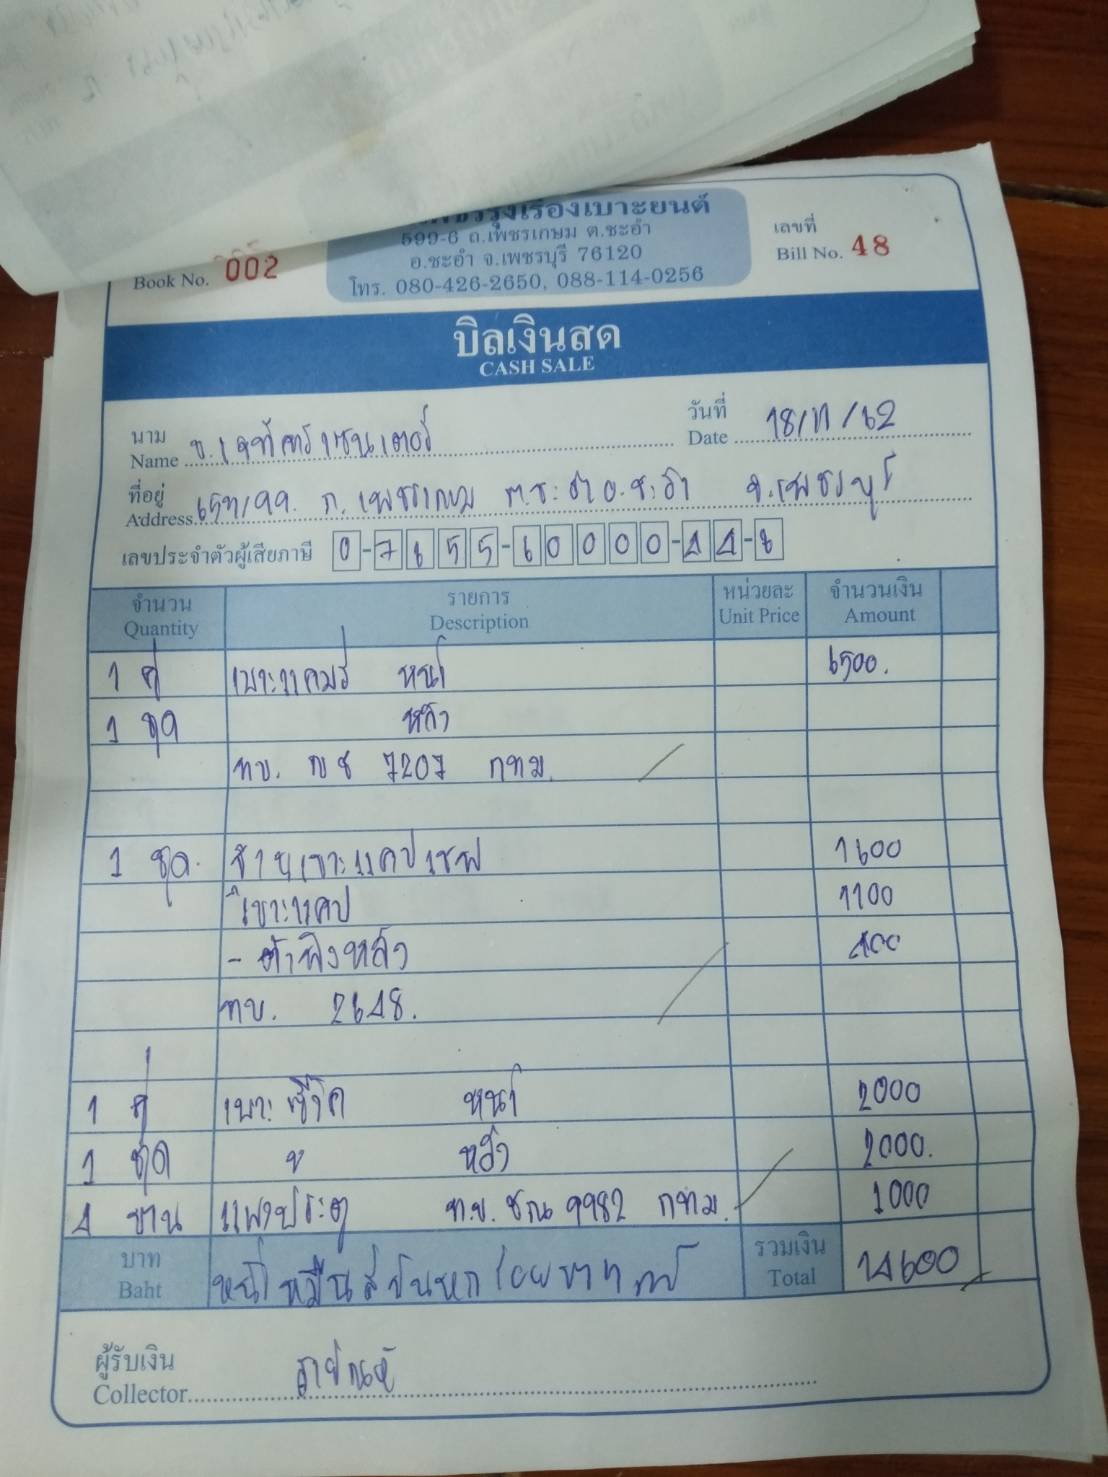 รุ่งเรืองเบาะยนต์
599-6 ถ.เพชรเกษม ต.ชะอำ
อ.ชะอำ จ.เพชรบุรี 76120
โทร. 080-426-2650, 088-114-0256
Book No. 002
เลขที่
Bill No. 48
บิลเงินสด
CASH SALE
นาม
Name
เซนเตอร์
วันที่
Date 18/11/62
ที่อยู่
Address ถ.เพชรเกษม ต.ชะอำ อ.ชะอำ จ.เพชรบุรี
เลขประจำตัวผู้เสียภาษี 0-7655-60000-44-8
จำนวน รายการ หน่วยละ จำนวนเงิน
Quantity Description Unit Price Amount
1 คู่ เบาะแคมรี่ หน้า 6500.
1 ชุด หลัง
ทบ. 7207 กทม.
1 ชุด. 1600
เบาะแคป 1100
หลัง 400
ทบ. 2648.
1 คู่ เบาะซีวิค หน้า 2000
1 ชุด หลัง 2000.
4 บาน แผงประตู ท.บ. ชณ 9982 กทม. 1000
บาท
Baht
หนึ่งหมื่นสี่พันหกร้อยบาทถ้วน
รวมเงิน
Total 14600
ผู้รับเงิน
Collector